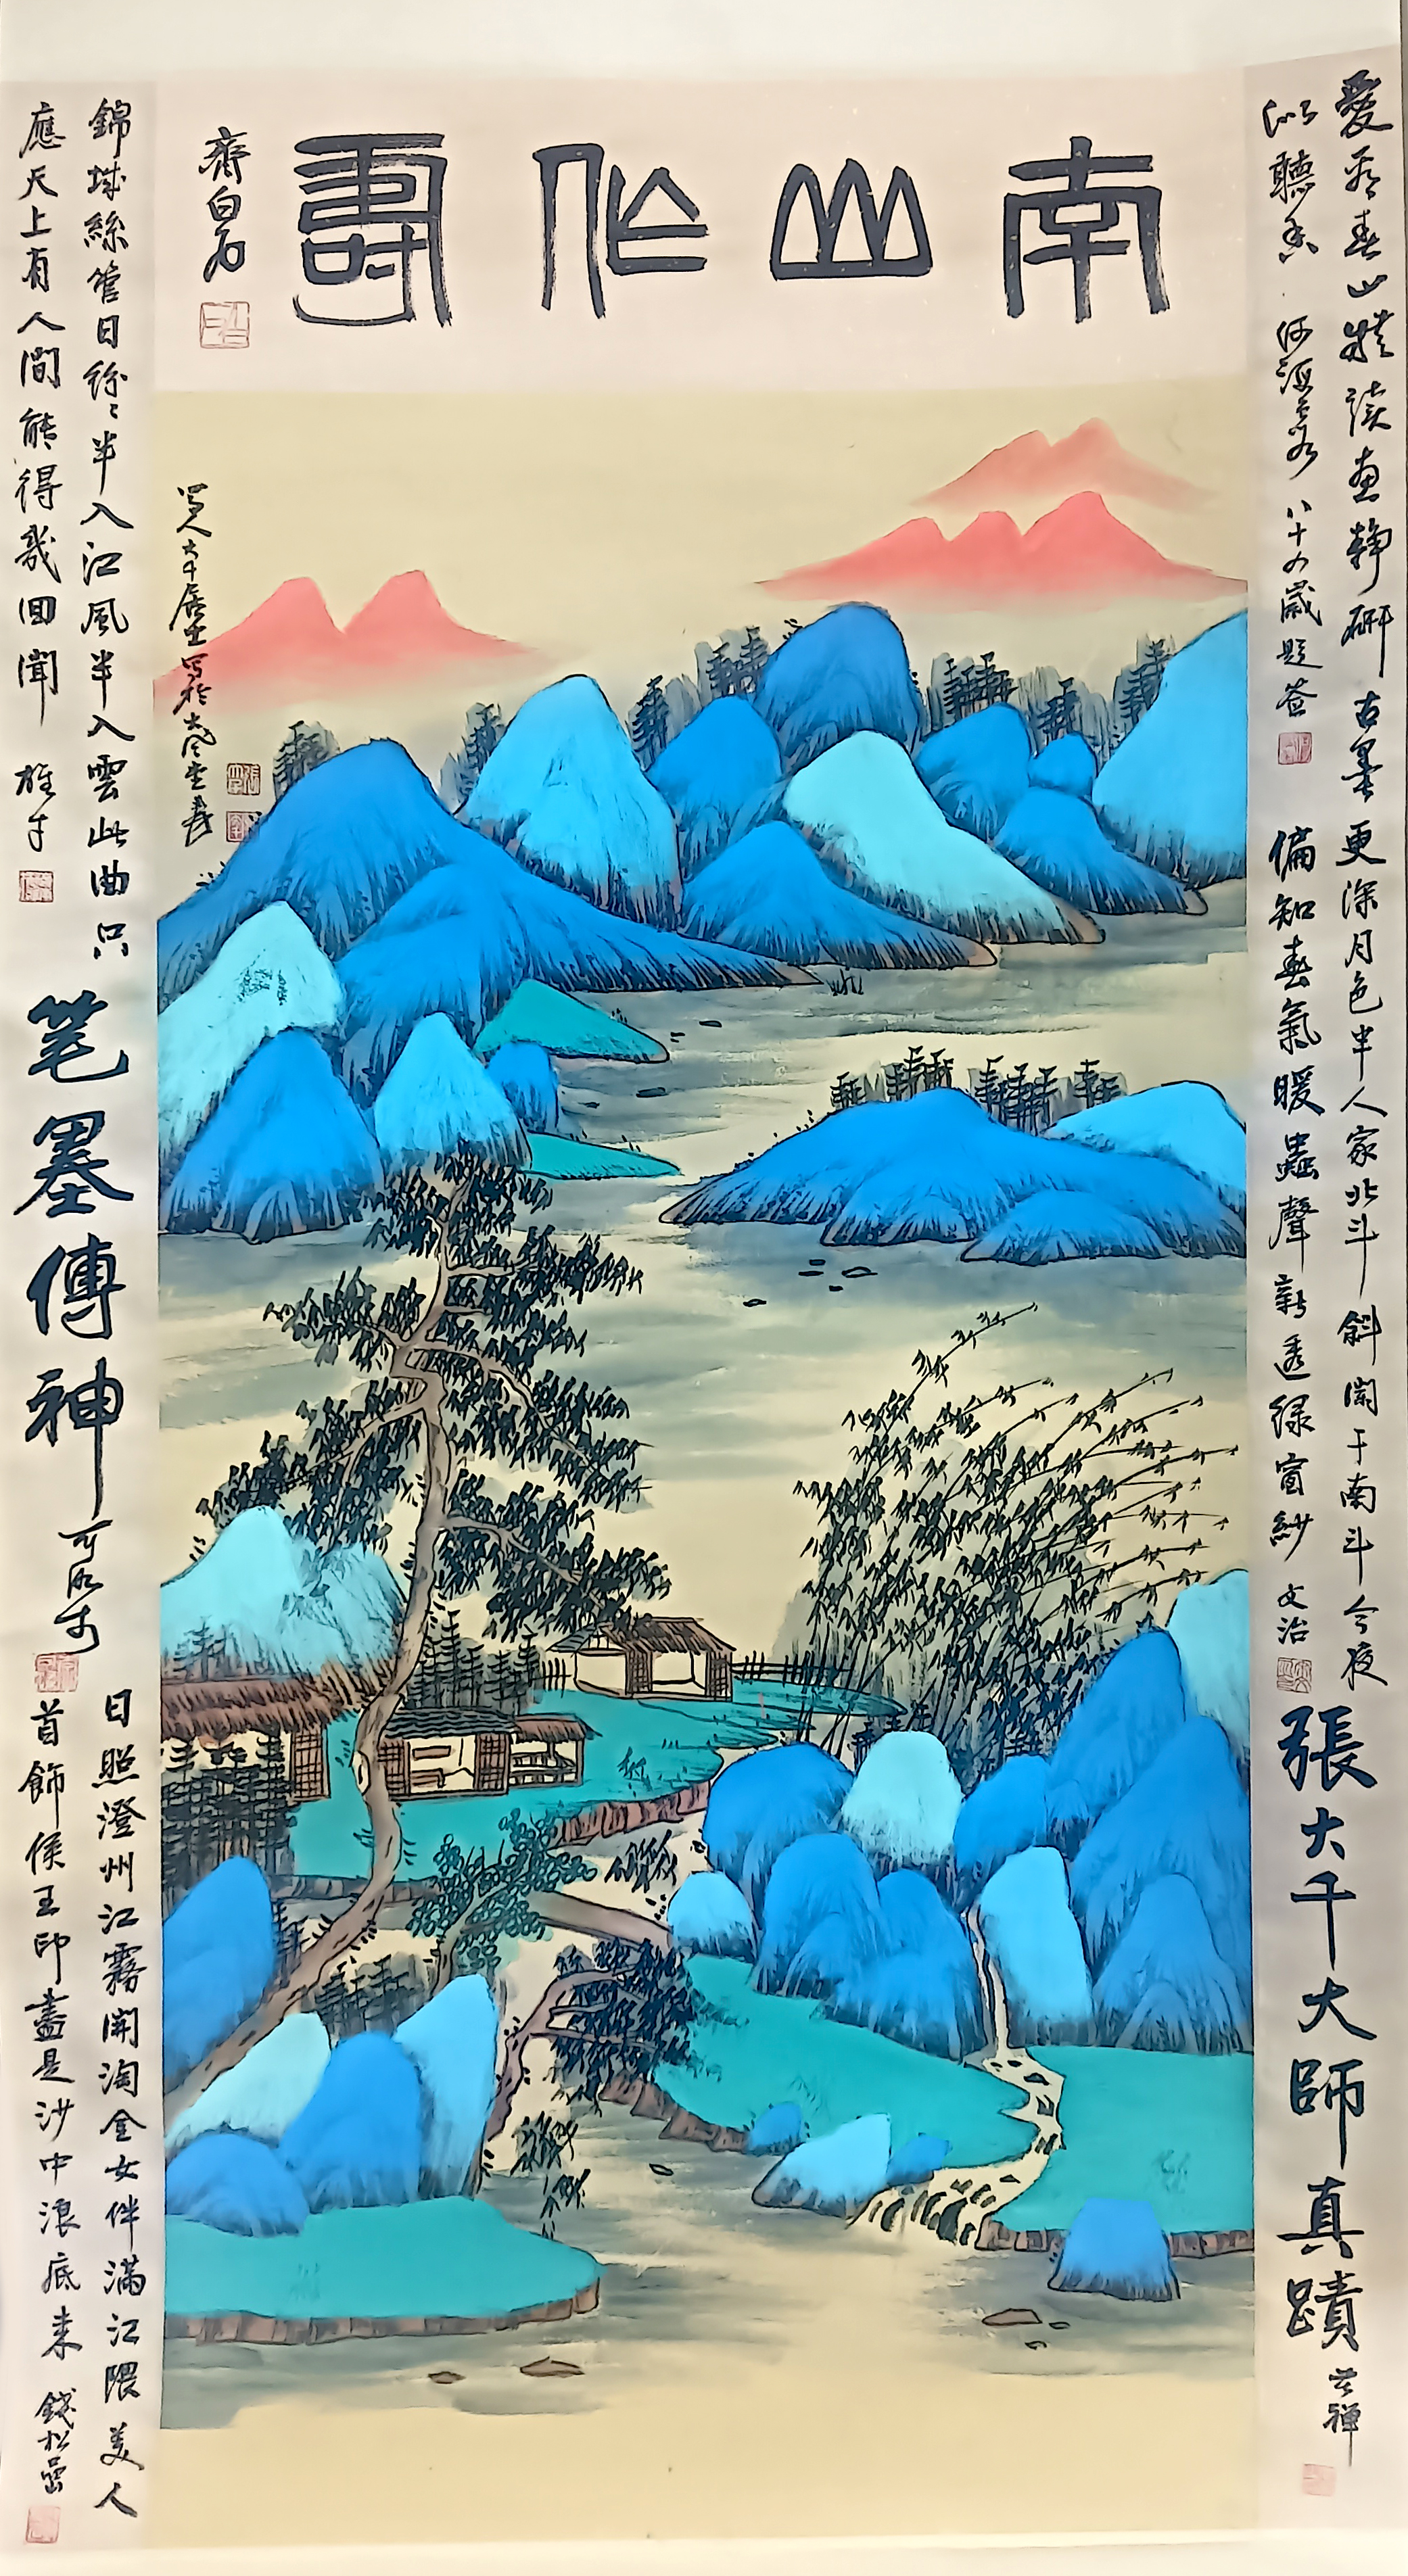 南山作壽
齊白石
蜀人大千居士寫於大風堂爰
愛看春山 讀畫靜研古墨
似聽香 何海霞 八十九歲題簽
更深月色半人家北斗闌干南斗斜今夜
偏知春氣暖蟲聲新透綠窗紗 文治
張大千大師真蹟 苦禪
錦城絲管日紛〻半入江風半入雲此曲只
應天上有人間能得幾回聞 雄才
笔墨傳神
日照澄州江霧開淘金女伴滿江隈美人
首飾侯王印盡是沙中浪底来 錢松嵒